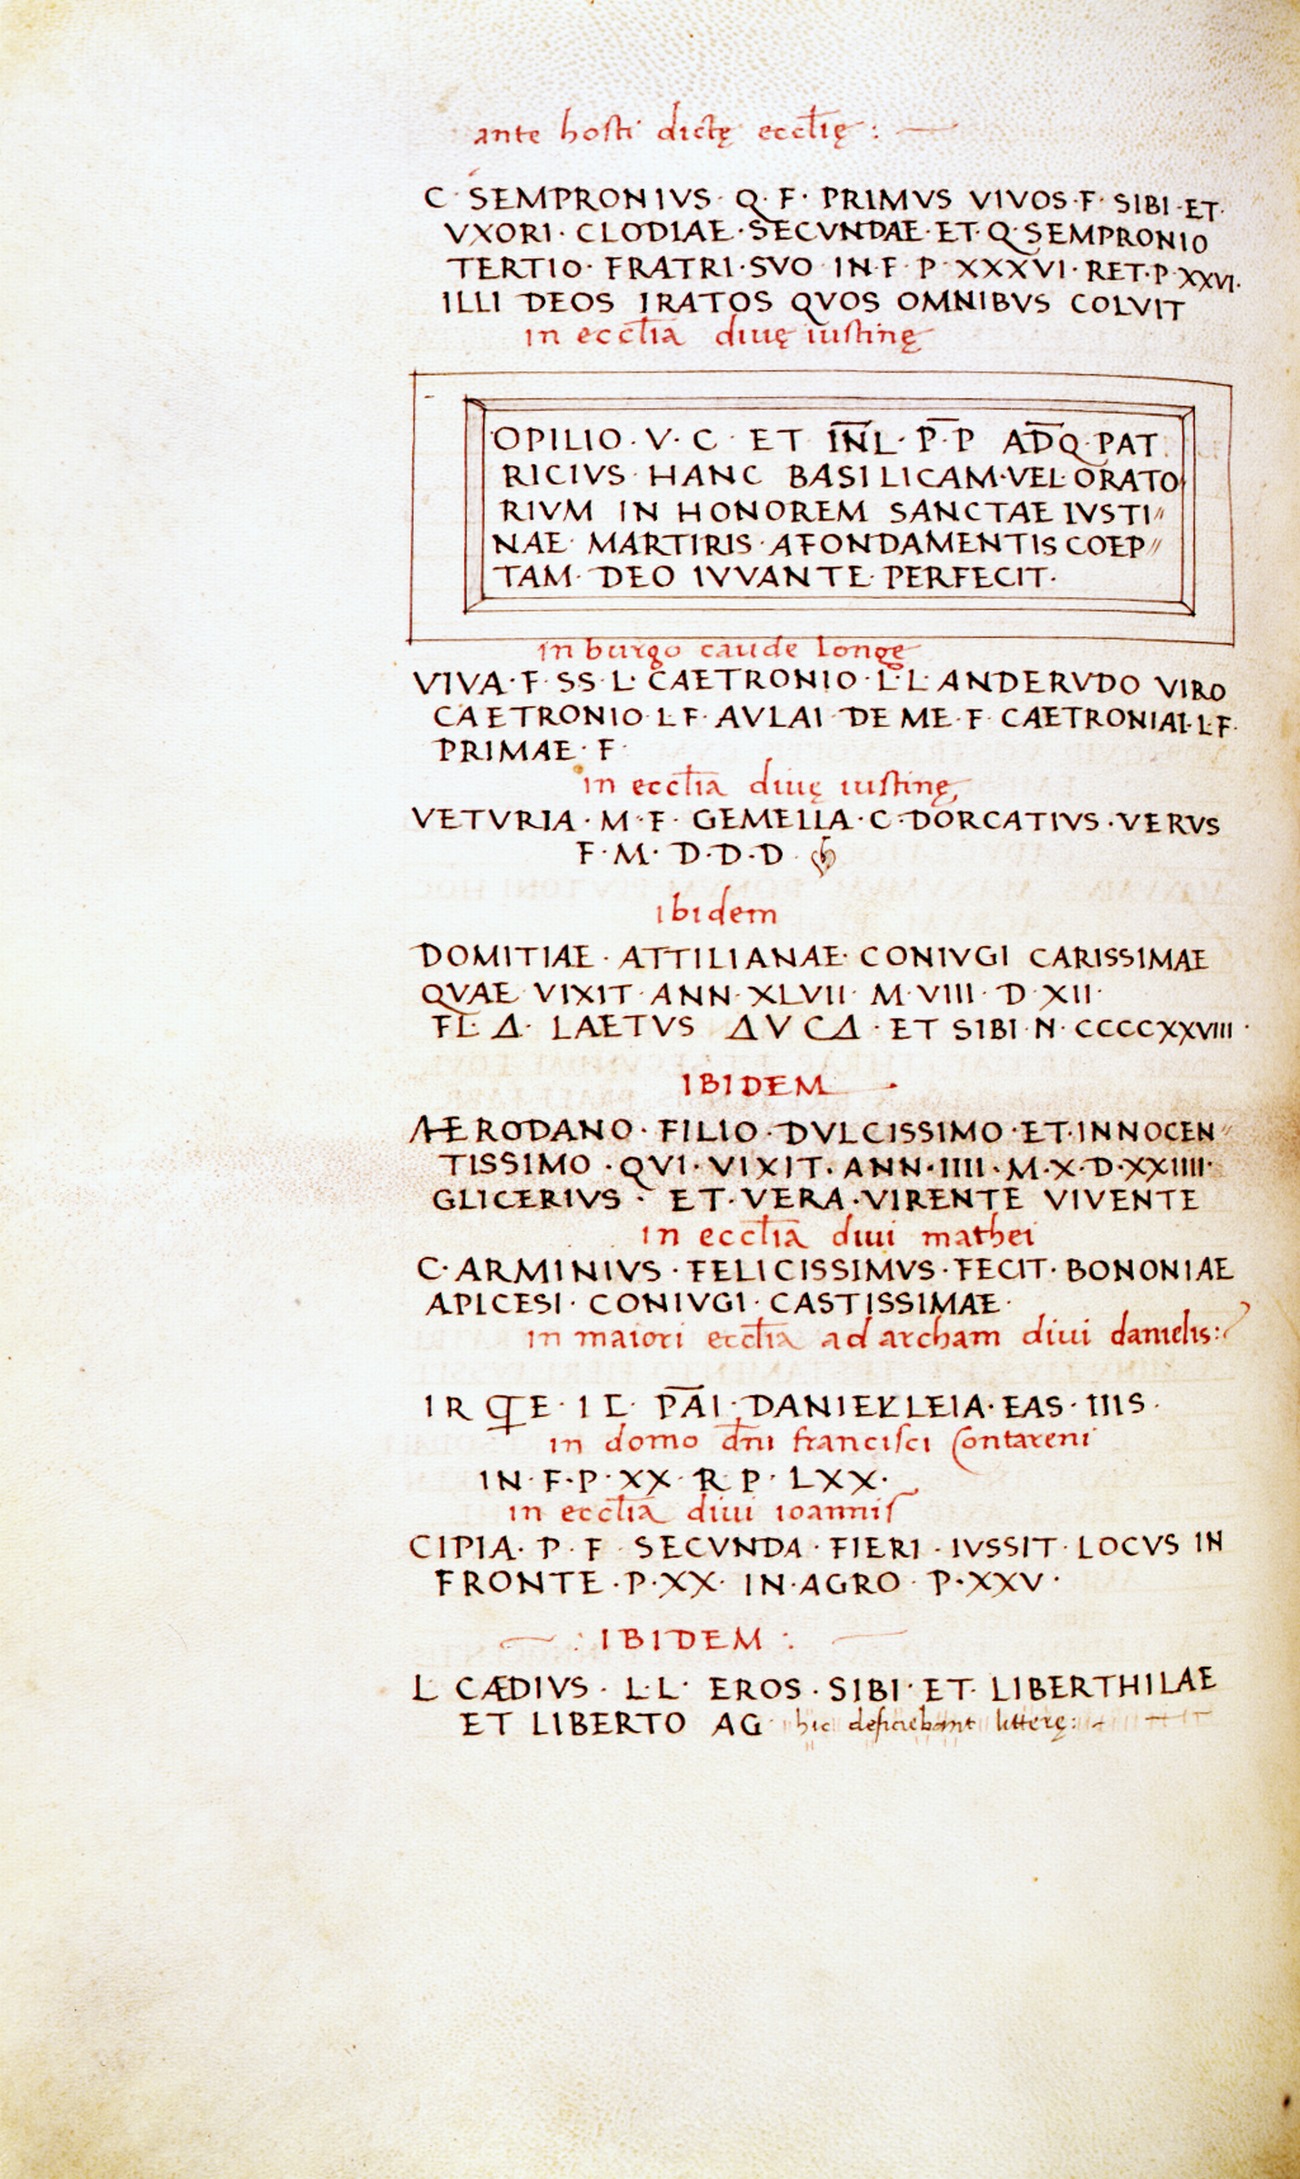 ante hosti dictę eccl̄ię :
C · SEMPRONIVS · Q · F · PRIMVS VIVOS · F · SIBI · ET ·
VXORI · CLODIAE · SECVNDAE · ET · Q · SEMPRONIO
TERTIO · FRATRI · SVO IN · F · P · XXXVI · RET · P · XXVI ·
ILLI DEOS IRATOS QVOS OMNIBVS COLVIT
in eccl̄ia diuę iustinę
OPILIO · V · C · ET IN̄L · P̄ · P AD̄Q · PAT
RICIVS · HANC BASILICAM · VEL · ORATO
RIVM IN HONOREM SANCTAE IVSTI〃
NAE · MARTIRIS · AFONDAMENTIS COEP〃
TAM · DEO IVVANTE · PERFECIT ·
in burgo caude longę
VIVA · F · SS · L · CAETRONIO · L · L · ANDERVDO VIRO
CAETRONIO · L · F · AVLAI · DE ME · F · CAETRONIAI · L · F ·
PRIMAE · F ·
in eccl̄ia diuę iustinę
VETVRIA · M · F · GEMELLA · C · DORCATIVS · VERVS
F · M · D · D · D · ❦
ibidem
DOMITIAE · ATTILIANAE · CONIVGI CARISSIMAE
QVAE VIXIT · ANN · XLVII · M · VIII · D · XII ·
FL · Δ · LAETVS ΔVCΔ · ET SIBI · N · CCCCXXVIII ·
IBIDEM
RODANO · FILIO · DVLCISSIMO · ET · INNOCEN〃
TISSIMO · QVI · VIXIT · ANN · IIII · M · X · D · XXIIII ·
GLICERIVS · ET · VERA · VIRENTE VIVENTE
in eccl̄ia diui mathei
C · ARMINIVS · FELICISSIMVS · FECIT · BONONIAE
APICESI · CONIVGI · CASTISSIMAE ·
in maiori eccl̄ia ad archam diui danielis :
I R E · I PĀI · EAS · IIIS ·
in domo dn̄i francisci Contareni
IN · F · P · XX · R P · LXX ·
in eccl̄ia diui ioannis
CIPIA · P · F · SECVNDA · FIERI · IVSSIT · LOCVS IN
FRONTE · P · XX · IN · AGRO · P · XXV ·
: IBIDEM :
L CÆDIVS · L · L · EROS · SIBI · ET · LIBERTHILAE
ET LIBERTO AG · hic deficiebant litterę :